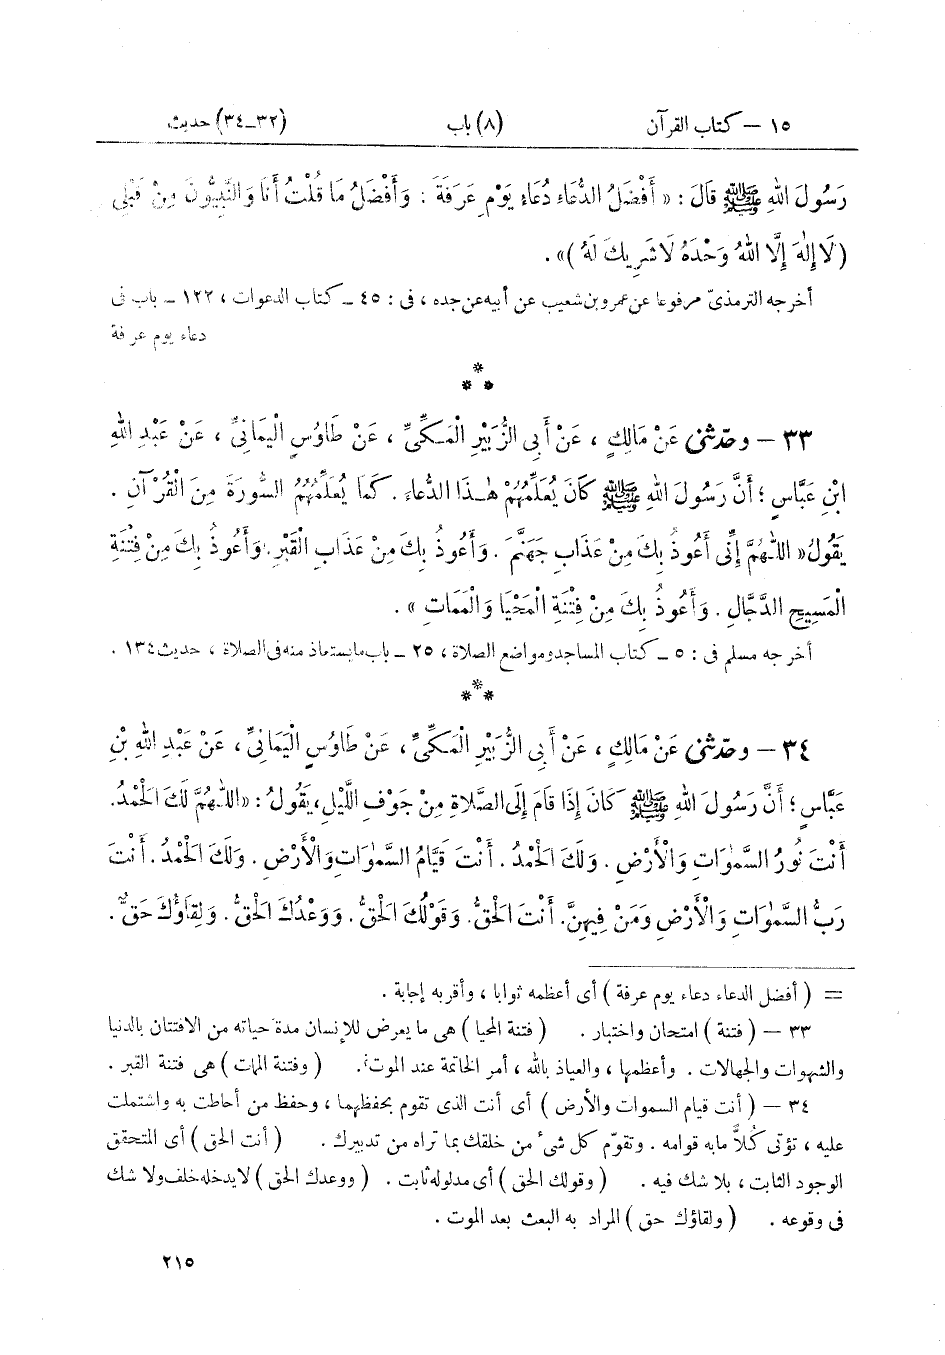 ١٥ — كتاب القرآن (٨) باب (٣٢_٣٤) حديث
رَسُولَ اللهِ ﷺ قَالَ : « أَفْضَلُ الدُّعَاءِ دُعَاءُ يَوْمِ عَرَفَةَ : وَأَفْضَلُ مَا قُلْتُ أَنَا وَالنَّبِيُّونَ مِنْ قَبْلِى
(لَا إِلٰهَ إِلَّا اللهُ وَحْدَهُ لَا شَرِيكَ لَهُ)» .
أخرجه الترمذىّ مرفوعا عن عمرو بن شعيب عن أبيه عن جده ، فى : ٤٥ ــ كتاب الدعوات ، ١٢٢ ــ باب فى
دعاء يوم عرفة
***
٣٣ — وحدّثنى عَنْ مَالِكٍ ، عَنْ أَبِى الزُّبَيْرِ الْمَكِّىِّ ، عَنْ طَاوُسٍ الْيَمَانِىِّ ، عَنْ عَبْدِ اللهِ
ابْنِ عَبَّاسٍ ؛ أَنَّ رَسُولَ اللهِ ﷺ كَانَ يُعَلِّمُهُمْ هٰذَا الدُّعَاءَ . كَمَا يُعَلِّمُهُمُ السُّورَةَ مِنَ الْقُرْآنِ .
يَقُولُ « اللّٰهُمَّ إِنِّى أَعُوذُ بِكَ مِنْ عَذَابِ جَهَنَّمَ . وَأَعُوذُ بِكَ مِنْ عَذَابِ الْقَبْرِ . وَأَعُوذُ بِكَ مِنْ فِتْنَةِ
الْمَسِيحِ الدَّجَّالِ . وَأَعُوذُ بِكَ مِنْ فِتْنَةِ الْمَحْيَا وَالْمَمَاتِ » .
أخرجه مسلم فى : ٥ ــ كتاب المساجد ومواضع الصلاة ، ٢٥ ــ باب ما يستعاذ منه فى الصلاة ، حديث ١٣٤ .
***
٣٤ — وحدّثنى عَنْ مَالِكٍ ، عَنْ أَبِى الزُّبَيْرِ الْمَكِّىِّ ، عَنْ طَاوُسٍ الْيَمَانِىِّ ، عَنْ عَبْدِ اللهِ بْنِ
عَبَّاسٍ ؛ أَنَّ رَسُولَ اللهِ ﷺ كَانَ إِذَا قَامَ إِلَى الصَّلَاةِ مِنْ جَوْفِ اللَّيْلِ ، يَقُولُ : « اللّٰهُمَّ لَكَ الْحَمْدُ .
أَنْتَ نُورُ السَّمٰوَاتِ وَالْأَرْضِ . وَلَكَ الْحَمْدُ . أَنْتَ قَيَّامُ السَّمٰوَاتِ وَالْأَرْضِ . وَلَكَ الْحَمْدُ . أَنْتَ
رَبُّ السَّمٰوَاتِ وَالْأَرْضِ وَمَنْ فِيهِنَّ . أَنْتَ الْحَقُّ . وَقَوْلُكَ الْحَقُّ . وَوَعْدُكَ الْحَقُّ . وَلِقَاؤُكَ حَقٌّ .
= (أفضل الدعاء دعاء يوم عرفة) أى أعظمه ثوابا ، وأقربه إجابة .
٣٣ — (فتنة) امتحان واختبار . (فتنة المحيا) هى ما يعرض للإنسان مدة حياته من الافتتان بالدنيا
والشهوات والجهالات . وأعظمها ، والعياذ بالله ، أمر الخاتمة عند الموت . (وفتنة الممات) هى فتنة القبر .
٣٤ — (أنت قيام السموات والأرض) أى أنت الذى تقوم بحفظهما ، وحفظ من أحاطت به واشتملت
عليه ، تؤتى كُلاًّ ما به قوامه . وتقوّم كل شىء من خلقك بما تراه من تدبيرك . (أنت الحق) أى المتحقق
الوجود الثابت ، بلا شك فيه . (وقولك الحق) أى مدلوله ثابت . (ووعدك الحق) لا يدخله خلف ولا شك
فى وقوعه . (ولقاؤك حق) المراد به البعث بعد الموت .
٢١٥